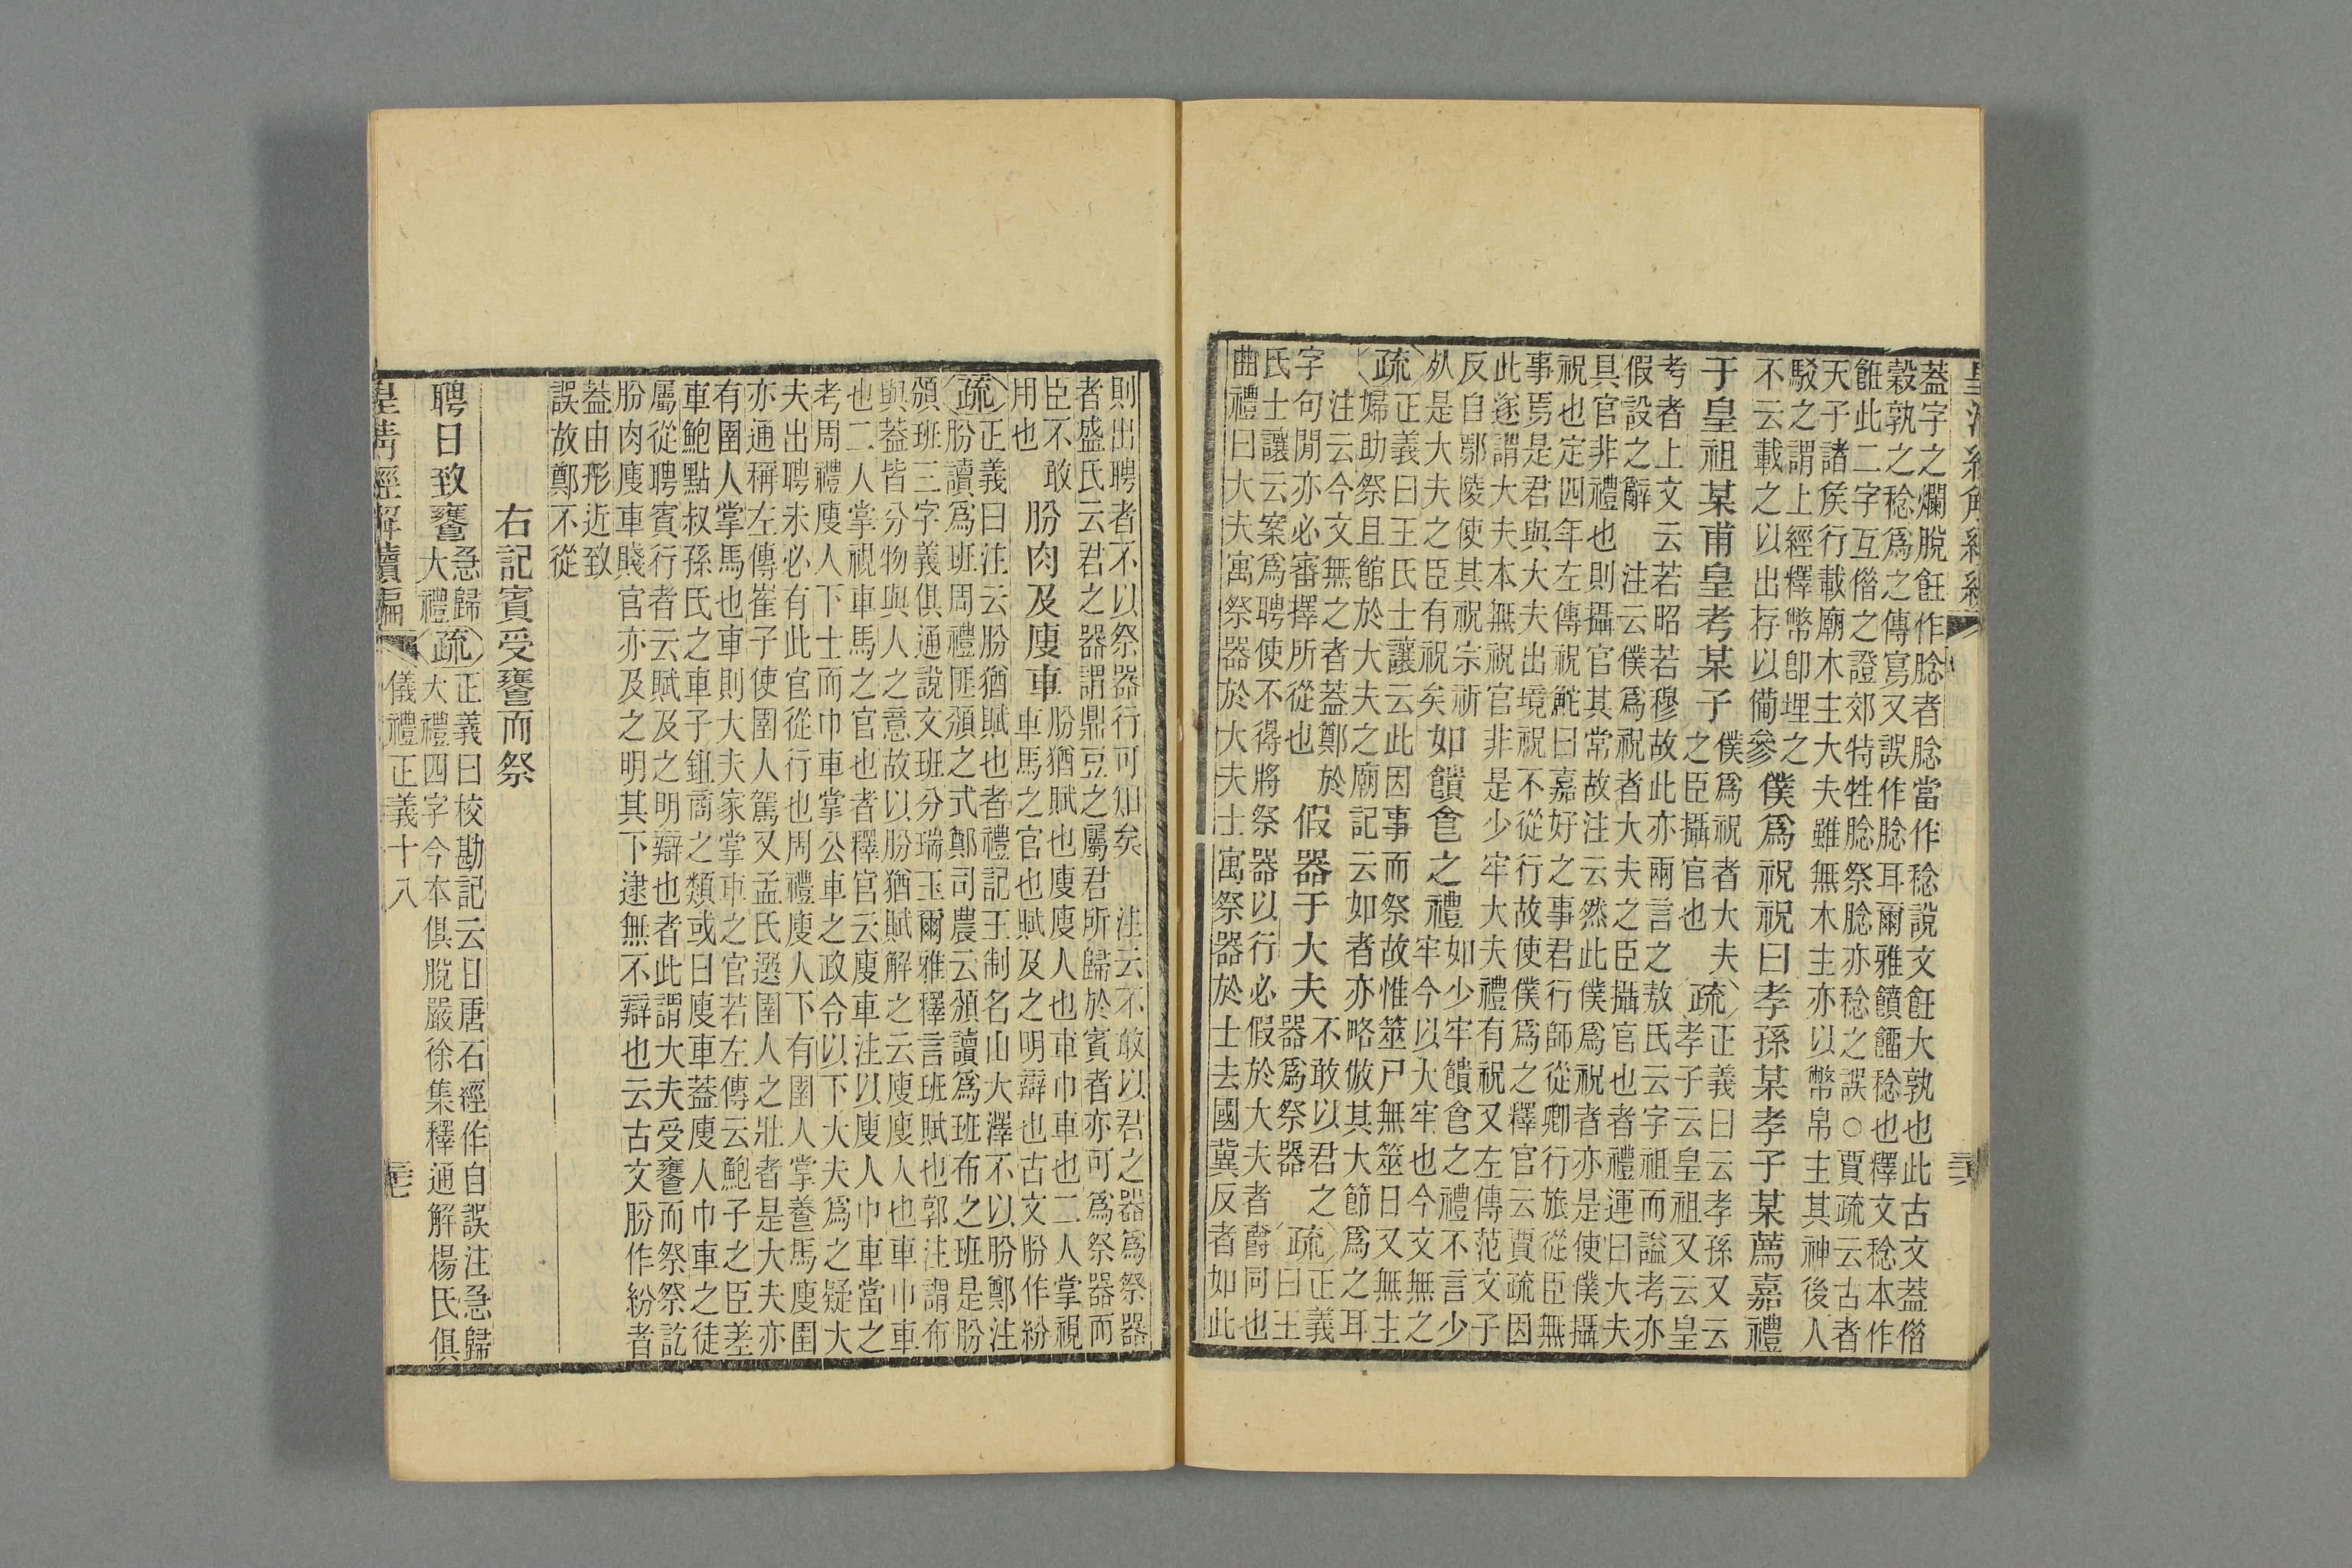 蓋字之爛脫飪作腍者腍當作稔說文飪大孰也此古文蓋僭
穀孰之稔爲之傳寫又誤作腍耳爾雅饙餾稔也釋文稔本作
飪此二字互僭之證郊特牲腍祭腍亦稔之誤○賈疏云古者
天子諸侯行載廟木主大夫雖無木主亦以幣帛主其神後人
駁之謂上經釋幣卽埋之
不云載之以出存以備參
僕爲祝祝曰孝孫某孝子某薦嘉禮
于皇祖某甫皇考某子
僕爲祝者大夫
之臣攝官也
疏
正義曰云孝孫又云
孝子云皇祖又云皇
考者上文云若昭若穆故此亦兩言之敖氏云字祖而謚考亦
假設之辭 注云僕爲祝者大夫之臣攝官也者禮運曰大夫
具官非禮也則攝官其常故注云然此僕爲祝者亦是使僕攝
祝也定四年左傳祝鮀曰嘉好之事君行師從卿行旅從臣無
事焉是君與大夫出境祝不從行故使僕爲之釋官云賈疏因
此遂謂大夫本無祝官非是少牢大夫禮有祝又左傳范文子
反自鄢陵使其祝宗祈
死是大夫之臣有祝矣
如饋食之禮
如少牢饋食之禮不言少
牢今以大牢也今文無之
疏
正義曰王氏士讓云此因事而祭故惟筮尸無筮日又無主
婦助祭且館於大夫之廟記云如者亦略倣其大節爲之耳
注云今文無之者蓋鄭於
字句閒亦必審擇所從也
假器于大夫
不敢以君之
器爲祭器
疏
正義
曰王
氏士讓云案爲聘使不得將祭器以行必假於大夫者爵同也
曲禮曰大夫寓祭器於大夫士寓祭器於士去國冀反者如此
則出聘者不以祭器行可知矣 注云不敢以君之器爲祭器
者盛氏云君之器謂鼎豆之屬君所歸於賓者亦可爲祭器而
臣不敢
用也
肦肉及廋車
肦猶賦也廋廋人也車巾車也二人掌視
車馬之官也賦及之明辯也古文肦作紛
疏
正義曰注云肦猶賦也者禮記王制名山大澤不以肦鄭注
肦讀爲班周禮匪頒之式鄭司農云頒讀爲班布之班是肦
頒班三字義俱通說文班分瑞玉爾雅釋言班賦也郭注謂布
與蓋皆分物與人之意故以肦猶賦解之云廋廋人也車巾車
也二人掌視車馬之官也者釋官云廋車注以廋人巾車當之
考周禮廋人下士而巾車掌公車之政令以下大夫爲之疑大
夫出聘未必有此官從行也周禮廋人下有圉人掌養馬廋圉
亦通稱左傳崔子使圉人駕又孟氏選圉人之壯者是大夫亦
有圉人掌馬也車則大夫家掌車之官若左傳云鮑子之臣差
車鮑點叔孫氏之車子鉏商之類或曰廋車蓋廋人巾車之徒
屬從聘賓行者云賦及之明辯也者此謂大夫受饔而祭祭訖
肦肉廋車賤官亦及之明其下逮無不辯也云古文肦作紛者
蓋由形近致
誤故鄭不從
右記賓受饔而祭
聘日致饔
急歸
大禮
疏
正義曰校勘記云日唐石經作自誤注急歸
大禮四字今本俱脫嚴徐集釋通解楊氏俱
皇清經解續編
儀禮正義十八